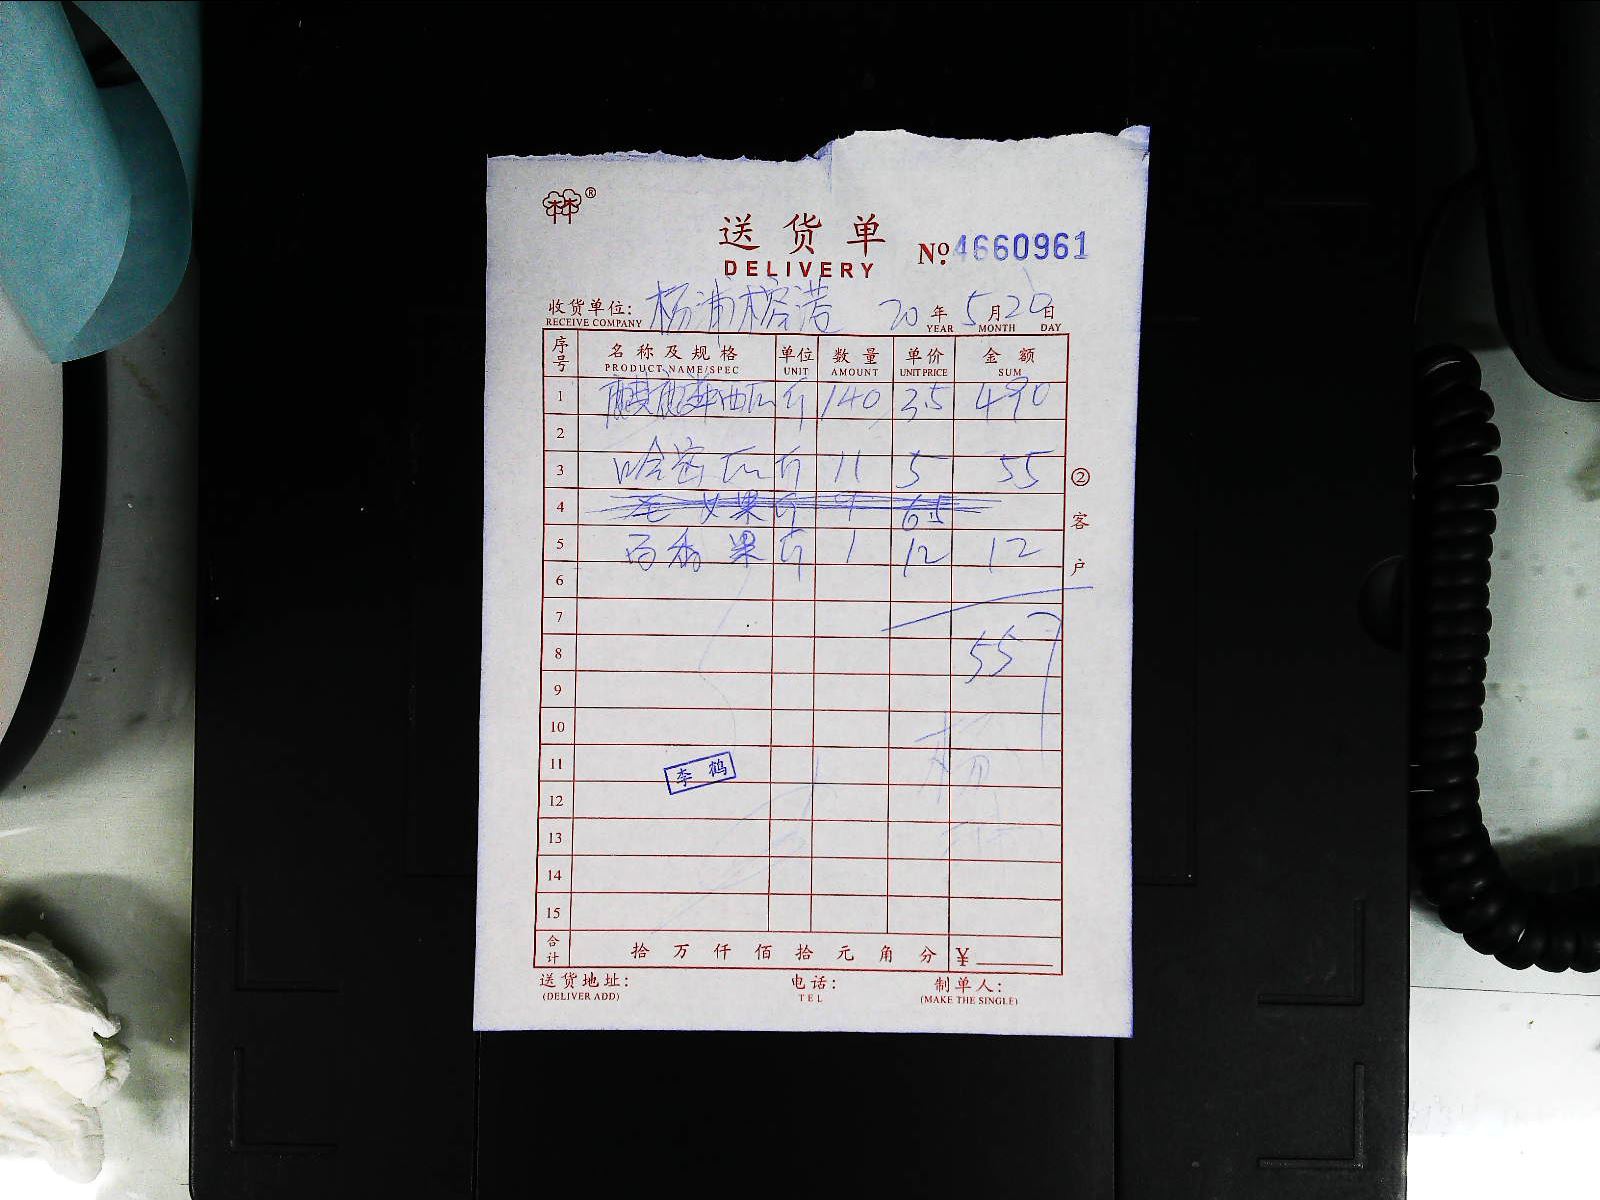 ®
送货单
DELIVERY
No.4660961
收货单位: 杨浦榕港 20年5月20日
RECEIVE COMPANY YEAR MONTH DAY
序号 名称及规格 单位 数量 单价 金额
PRODUCT NAME/SPEC UNIT AMOUNT UNIT PRICE SUM
1 麒麟西瓜 斤 140 3.5 490
2
3 哈密瓜 斤 11 5 55
4 火果 斤 6.5
5 百香果 斤 1 12 12
6
7
8 557
9
10
11 李鹤
12
13
14
15
合计 拾万仟佰拾元角分 ¥
送货地址: 电话: 制单人:
(DELIVER ADD) TEL (MAKE THE SINGLE)
②客户